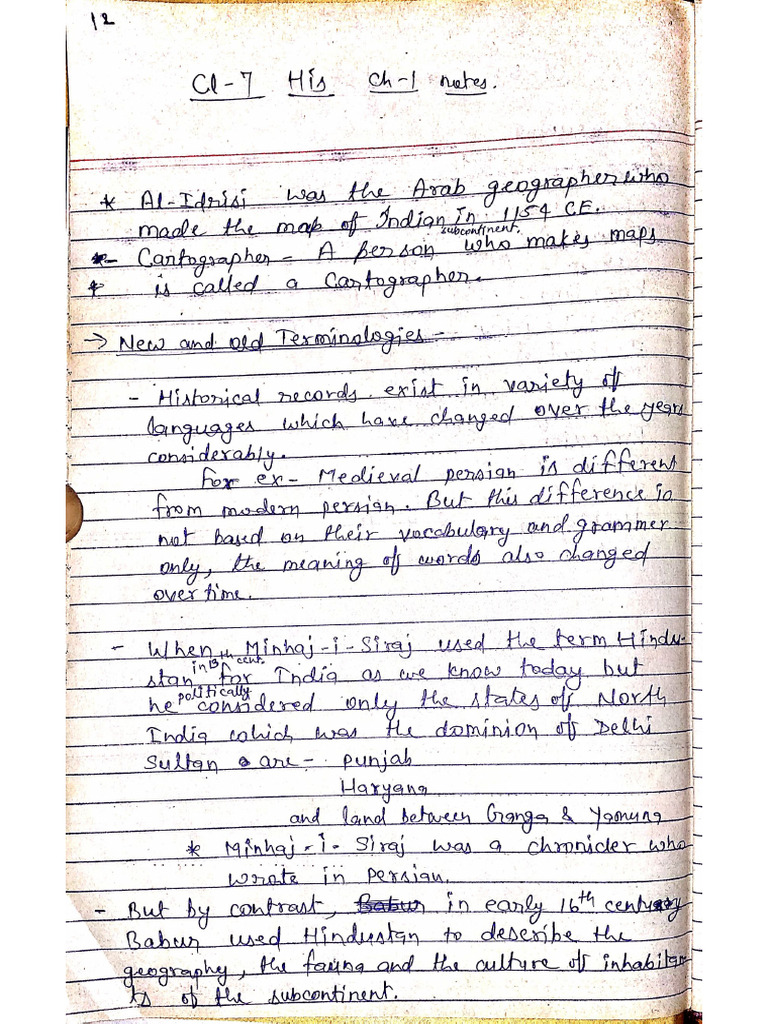 12
Cl-7 His Ch-1 notes.
* Al-Idrisi was the Arab geographer who
made the map of Indian subcontinent. in 1154 CE.
*- Cartographer - A person who makes maps
* is called a Cartographer.
→ New and old Terminologies -
- Historical records exist in variety of
languages which have changed over the years
considerably.
For ex- Medieval persian is different
from modern persian. But this difference is
not based on their vocabulary and grammer
only, the meaning of words also changed
over time.
- When in 13th cent. Minhaj-i-Siraj used the term Hindu-
stan for India as we know today but
he politically considered only the states of North
India which was the dominion of Delhi
Sultan are - Punjab
Haryana
and land between Ganga & Yamuna
* Minhaj-i-Siraj was a chronider who
wrote in Persian.
- But by contrast, Babur in early 16th century
Babur used Hindustan to describe the
geography, the fauna and the culture of inhabitan-
ts of the subcontinent.